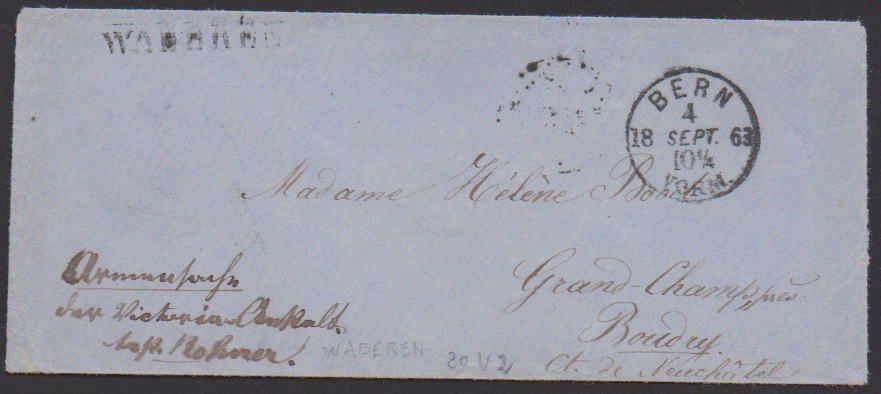 WABEREN
BERN
4
18 SEPT. 63
10¼
VORM.
Madame Hélène
Grand-Champ, près
Boudry.
Ct. de Neuchâtel
Armensache
der Victoria-Anstalt.
Rohner!
WABEREN 20 V 2